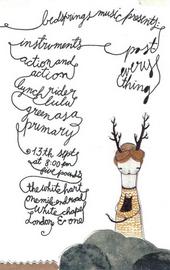 bedsprings music presents:
instruments
post
action and
every
actioon
thing
lynch rider
lulu
green asa
primary
13th sept
at 8:00pm
five pounds
the white hart
one mile end road
white chapel
london e one